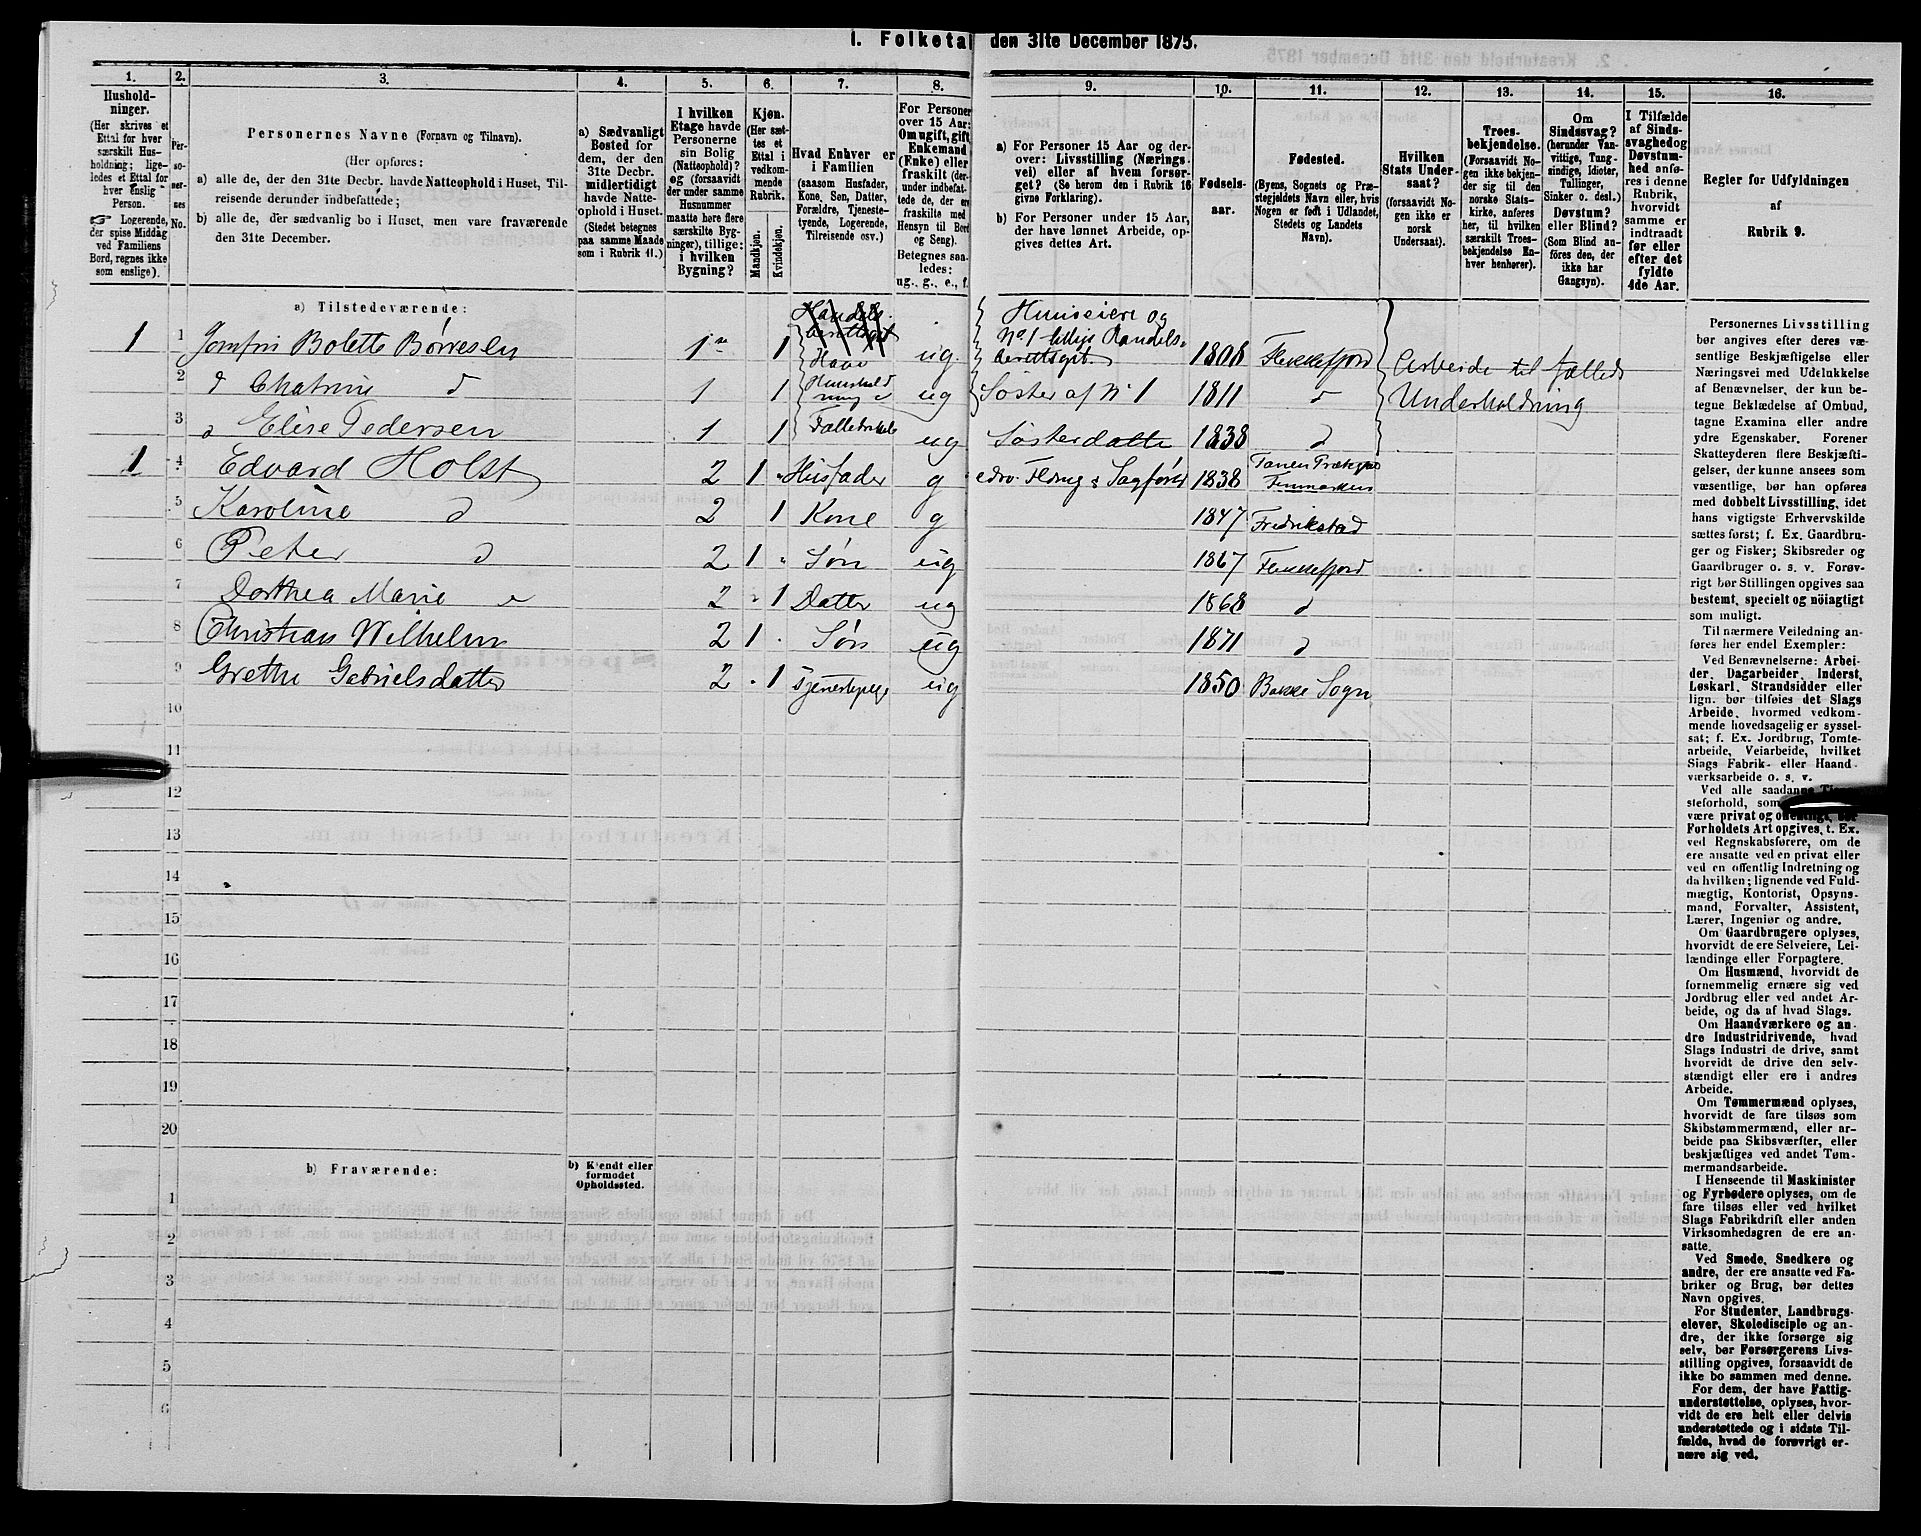 I. Folketal den 31te December 1875.
1. 2. 3. 4. 5. 6. 7. 8. 9. 10. 11. 12. 13. 14. 15. 16.
Husholdninger.
(Her skrives et Ettal for hver særskilt Husholdning; ligeledes et Ettal for hver enslig Person.
☞ Logerende, der spise Middag ved Familiens Bord, regnes ikke som enslige).
Personernes No.
Personernes Navne (Fornavn og Tilnavn).
(Her opføres:
a) alle de, der den 31te Decbr. havde Natteophold i Huset, Tilreisende derunder indbefattede;
b) alle de, der sædvanlig bo i Huset, men vare fraværende den 31te December.
a) Sædvanligt Bosted for dem, der den 31te Decbr. midlertidigt havde Natteophold i Huset. (Stedet betegnes paa samme Maade som i Rubrik 11.)
I hvilken Etage havde Personerne sin Bolig (Natteophold)? og (forsaavidt der under samme Husnummer maatte høre flere særskilte Bygninger), tillige: i hvilken Bygning?
Kjøn. (Her sættes et Ettal i vedkommende Rubrik.
Mandkjøn. Kvindekjøn.
Hvad Enhver er i Familien (saasom Husfader, Kone, Søn, Datter, Forældre, Tjenestetyende, Logerende, Tilreisende osv.)
For Personer over 15 Aar: Om ugift, gift, Enkemand (Enke) eller fraskilt (derunder indbefattede de, der ere fraskilte med Hensyn til Bord og Seng). Betegnes saaledes: ug., g., e., f.
a) For Personer 15 Aar og derover: Livsstilling (Næringsvei) eller af hvem forsørget? (Se herom den i Rubrik 16 givne Forklaring).
b) For Personer under 15 Aar, der have lønnet Arbeide, opgives dettes Art.
Fødselsaar.
Fødested. (Byens, Sognets og Præstegjeldets Navn eller, hvis Nogen er født i Udlandet, Stedets og Landets Navn).
Hvilken Stats Undersaat? (forsaavidt Nogen ikke er norsk Undersaat).
Troesbekjendelse. (Forsaavidt Nogen ikke bekjender sig til den norske Statskirke, anføres her, til hvilken særskilt Troesbekjendelse Enhver henhører).
Om Sindssvag? (herunder Vanvittige, Tungsindige, Idioter, Tullinger, Sinker o. desl.) Døvstum? eller Blind? (Som Blind anføres den, der ikke har Gangsyn).
I Tilfælde af Sindssvaghed og Døvstumhed anføres i denne Rubrik, hvorvidt samme er indtraadt før eller efter det fyldte 4de Aar.
Regler for Udfyldningen af Rubrik 9.
a) Tilstedeværende:
1 1 Jomfru Bolette Børresen 1ste 1 Handels- berettiget ug. Huuseiere og No. 1 tillige Handels- berettiget 1808 Flekkefjord Arbeide til fælleds Underholdning
2 d Chatrine d 1 1 ug Søster af N. 1 1811 d
3 d Elise Pedersen 1 1 ug Søsterdatter 1838 d
1 4 Edvard Holst 2 1 Husfader g 1838
5 Karoline d 2 1 Kone g 1847 Fredrikstad
6 Peter d 2 1 Søn ug 1867 Flekkefjord
7 Dorthea Marie d 2 1 Datter ug 1868 d
8 Christian Wilhelm 2 1 Søn ug 1871 d
9 Grethe Gabrielsdatter 2 1 Tjenestepige ug 1850 Bakke Sogn
10
11
12
13
14
15
16
17
18
19
20
b) Fraværende: b) Kjendt eller formodet Opholdssted.
1
2
3
4
5
6
Personernes Livsstilling
bør angives efter deres væ-
sentlige Beskjæftigelse eller
Næringsvei med Udelukkelse
af Benævnelser, der kun be-
tegne Beklædelse af Ombud,
tagne Examina eller andre
ydre Egenskaber. Forener
Skatteyderen flere Beskjæfti-
gelser, der kunne ansees som
væsentlige, bør han opføres
med dobbelt Livsstilling, idet
hans vigtigste Erhvervskilde
sættes først; f. Ex. Gaardbru-
ger og Fisker; Skibsreder og
Gaardbruger o. s. v. Forøv-
rigt bør Stillingen opgives saa
bestemt, specielt og nøiagtigt
som muligt.
Til nærmere Veiledning an-
føres her endel Exempler:
Ved Benævnelserne: Arbei-
der, Dagarbeider, Inderst,
Løskarl, Strandsidder eller
lign. bør tilføies det Slags
Arbeide, hvormed vedkom-
mende hovedsagelig er syssel-
sat; f. Ex. Jordbrug, Tomte-
arbeide, Veiarbeide, hvilket
Slags Fabrik- eller Haand-
værksarbeide o. s. v.
Ved alle saadanne Tjene-
steforhold, som
være privat og offentligt, bør
Forholdets Art opgives, t. Ex.
ved Regnskabsførere, om de
ere ansatte ved en privat eller
ved en offentlig Indretning og
da hvilken; lignende ved Fuld-
mægtig, Kontorist, Opsyns-
mand, Forvalter, Assistent,
Lærer, Ingeniør og andre.
Om Gaardbrugere oplyses,
hvorvidt de ere Selveiere, Lei-
lændinge eller Forpagtere.
Om Husmænd, hvorvidt de
fornemmelig ernære sig ved
Jordbrug eller ved andet Ar-
beide, og da af hvad Slags.
Om Haandværkere og an-
dre Industridrivende, hvad
Slags Industri de drive, samt
hvorvidt de drive den selv-
stændigt eller ere i andres
Arbeide.
Om Tømmermænd oplyses,
hvorvidt de fare tilsøs som
Skibstømmermænd, eller ar-
beide paa Skibsværfter, eller
beskjæftiges ved andet Tøm-
mermandsarbeide.
I Henseende til Maskinister
og Fyrbødere oplyses, om de
fare tilsøs eller ved hvilket
Slags Fabrikdrift eller anden
Virksomhedsgren de ere an-
satte.
Ved Smede, Snedkere og
andre, der ere ansatte ved Fa-
briker og Brug, bør dettes
Navn opgives.
For Studenter, Landbrugs-
elever, Skoledisciple og an-
dre, der ikke forsørge sig
selv, bør Forsørgerens Livs-
stilling opgives, forsaavidt de
ikke bo sammen med denne.
For dem, der have Fattig-
understøttelse, oplyses, hvor-
vidt de ere helt eller delvis
understøttede og i sidste Til-
fælde, hvad de forøvrigt er-
nære sig ved.